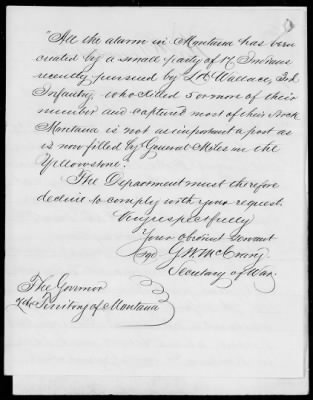 "All the alarm in Montana has been
created by a small party of 17 Indians
recently pursued by Lt Wallace, 3rd
Infantry, who killed 5 or more of their
number and captured most of their stock
Montana is not as important a post as
is now filled by General Miles on the
Yellowstone."
The Department must therefore
decline to comply with your request.
Very respectfully
Your obedient servant
Sgd G. W. McCrary
Secretary of War.
The Governor
of the Territory of Montana